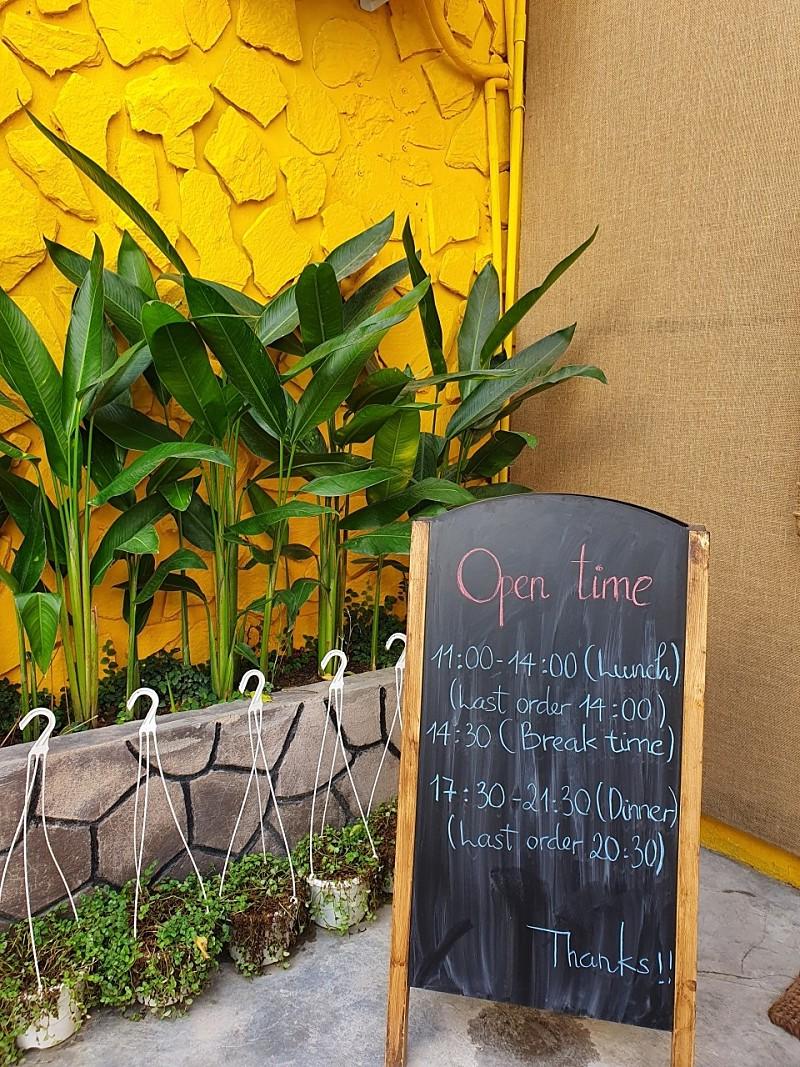 Open time
11:00-14:00 (Lunch)
(Last order 14:00)
14:30 (Break time)
17:30-21:30 (Dinner)
(Last order 20:30)
Thanks!!